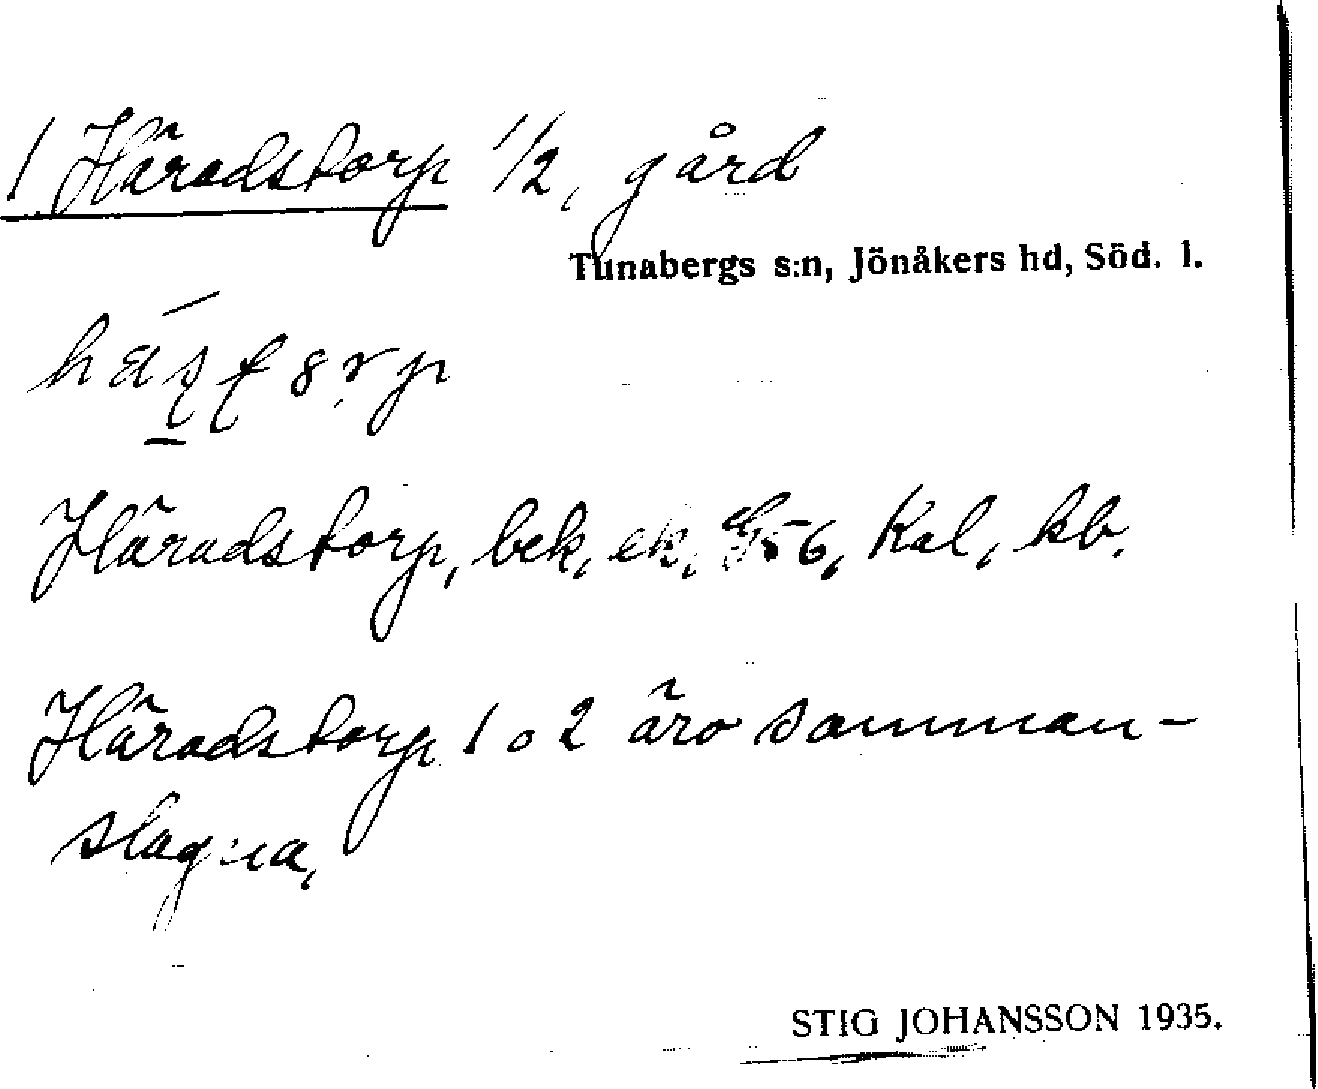 1 Häradstorp 1/2, gård
Tunabergs s:n, Jönåkers hd, Söd. l.
Häradstorp, bek, ek, G56, Kal, kb.
Häradstorp 1 o 2 äro samman-
slagna,
STIG JOHANSSON 1935.